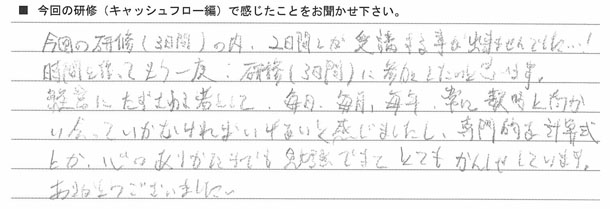 ■ 今回の研修（キャッシュフロー編）で感じたことをお聞かせ下さい。
今回の研修（3日間）の内、2日間しか受講する事が出来ませんでした…！
時間を作ってもう一度、研修（3日間）に参加したいと思います。
経営にたずさわる者として、毎日、毎月、毎年、常に数時と向か
い合っていかなければいけないと感じましたし、専門的な計算式
とか、心のありかたまでも勉強できて とてもかんしゃしています。
ありがとうございました。